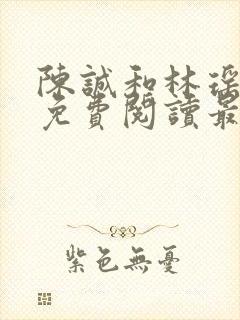 陳誠和林瑶
免費閱讀最
紫色無憂